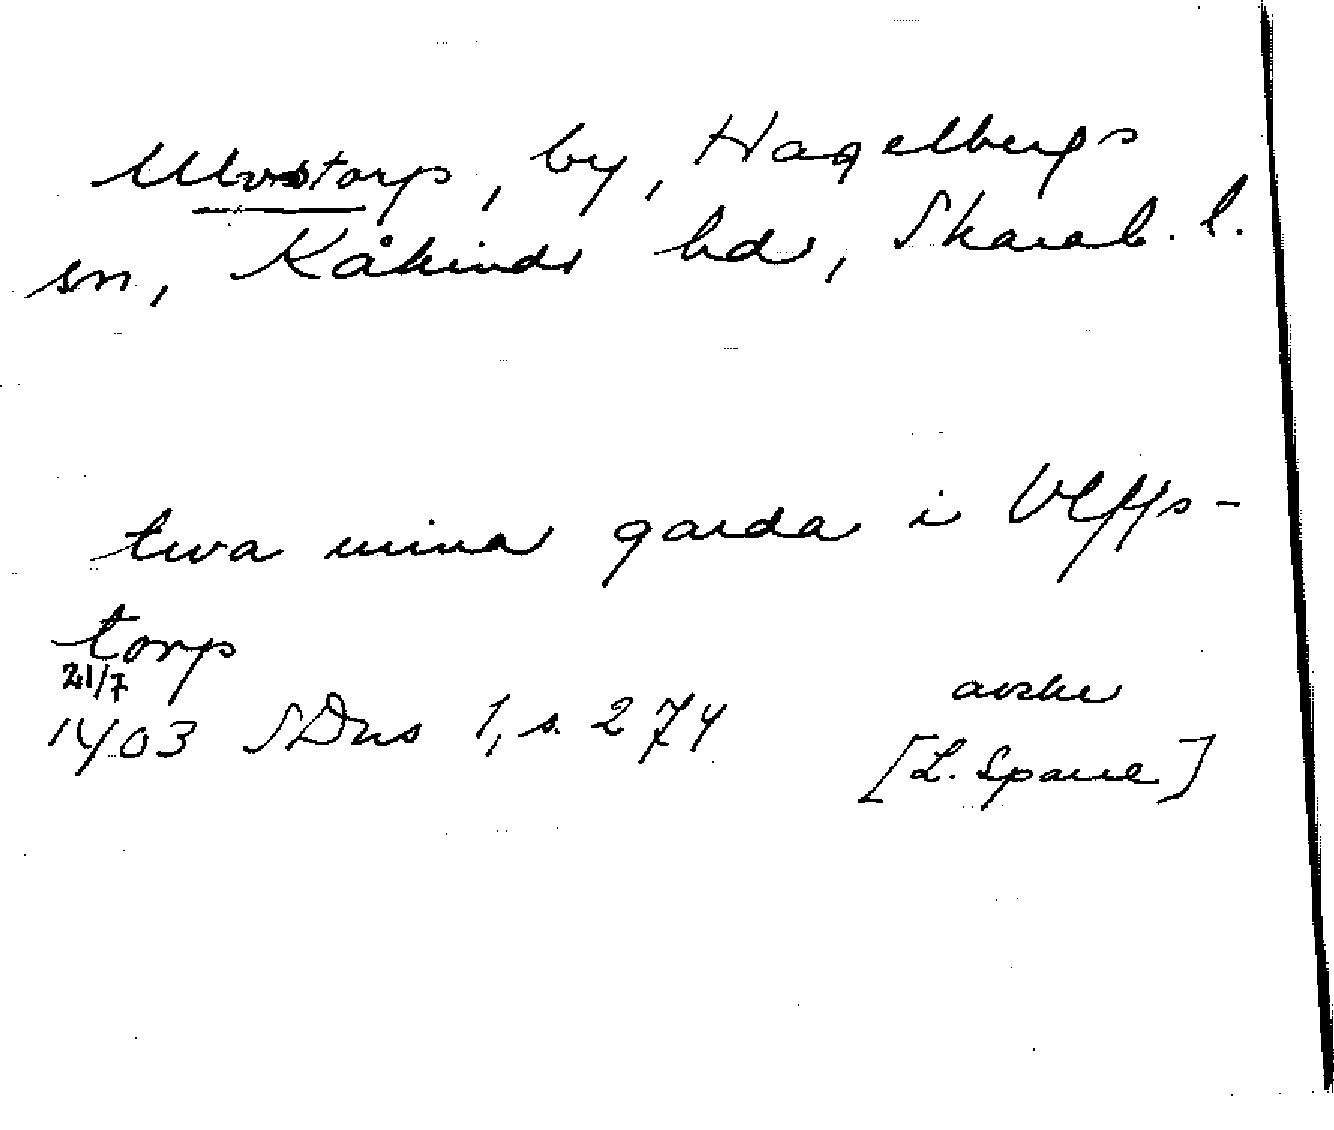 Ulvstorp, by, Hagelbergs
sn, Kåkinds hd, Skarab. l.
twa mina garda i Vlffs-
torp
21/7
1403 SDns 1, s. 274
avskr
[L. Sparre]